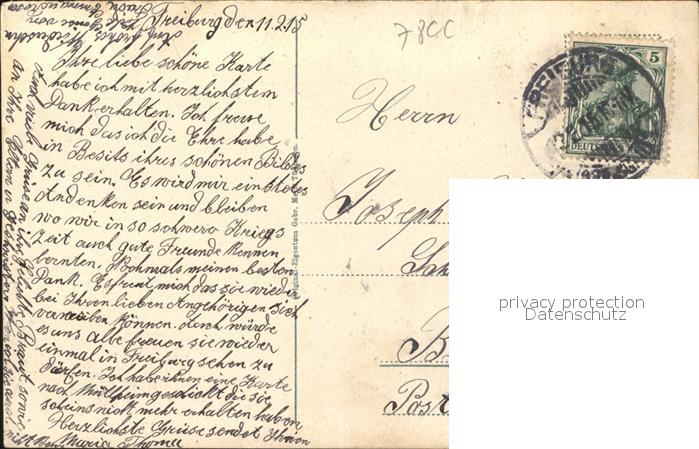 Freiburg den 11.2.15
Ihre liebe schöne Karte
habe ich mit herzlichstem
Dank erhalten. Ich freue
mich das ich die Ehre habe
in Besitz ihres schönen Bildes
zu sein. Es wird mir ein liebes
Andenken sein und bleiben
wo wir in so schwerer Kriegs
Zeit auch gute Freunde kennen
lernten. Nochmals meinen besten
Dank. Es freut mich das sie wieder
bei Ihren lieben Angehörigen sich
können. Auch würde
es uns alle freuen sie wieder
einmal in Freiburg sehen zu
dürfen. Ich habe ihnen eine Karte
nach Müllheim geschickt die sie
scheins nicht mehr erhalten haben
Herzlichste Grüse sendet Ihnen
Maria Thoma
auch viele Grüse an ihr Braut sowie
an Ihre Eltern u. Geschwistern
78CC
Herrn
Joseph
Post
5
FREIBURG
DEUTSCHES REICH
privacy protection
Datenschutz